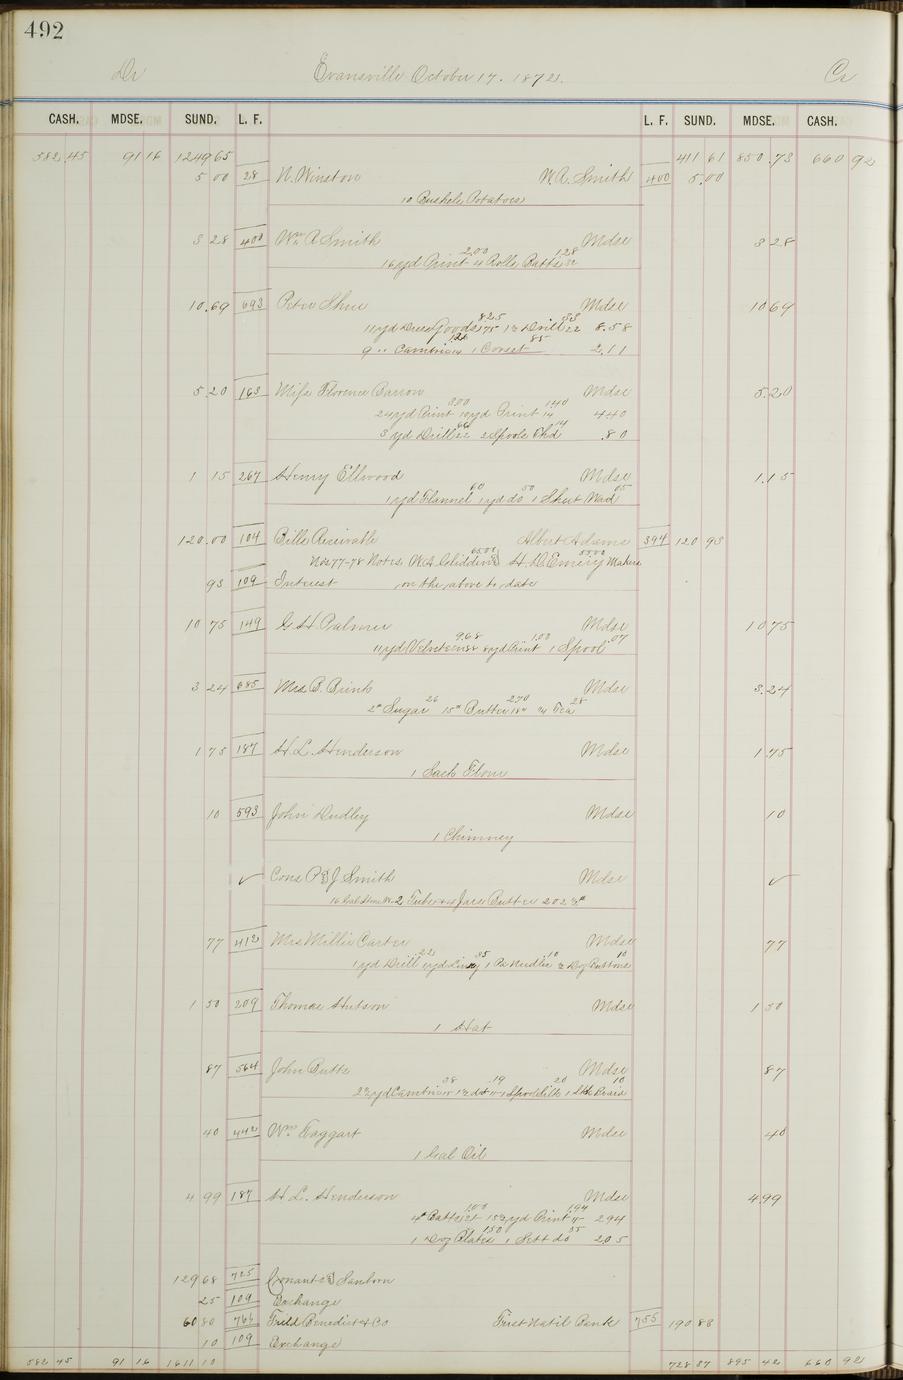 492
Dr Evansville October 17. 1872. Cr
CASH. MDSE. SUND. L. F. L. F. SUND. MDSE. CASH.
582 45 91 16 1249 65 411 61 850 73 660 92
5 00 28 N. Winston W. A. Smith 400 5.00
10 Bushels Potatoes
3 28 400 Wm A Smith Mdse 3 28
2.00 1.28
16 yd Print 4 Rolls Batts 32
10.69 693 Peter Shue Mdse 10 69
8.25 33
11 yd Dress Goods 75 1½ Drill 22 8.58
1.26 85
9 " Cambric 14 1 Corset 2.11
5.20 163 Miss Florence Barrow Mdse 5.20
3.00 1.40
24 yd Print 10 yd Print 14 4 40
66 14
3 yd Drill 22 2 Spools Thd .80
1 15 267 Henry Ellwood Mdse 1.15
60 50 05
1 yd Flannel 1 yd do 1 Sheet Wad
120.00 104 Bills Receivable Albert Adams 394 120 93
65.00 55.00
Nos 77-78 Notes, W. A. Glidden & H. D. Emery Makers
93 109 Interest on the above to date
10 75 149 G. H. Palmer Mdse 10 75
9.68 1.00 07
11 yd Velveteen 88 8 yd Print 1 Spool
3 24 685 Mrs B. Brink Mdse 3.24
26 2.70 28
2# Sugar 15# Butter 18" ¼ Tea
1 75 187 H. L. Henderson Mdse 1.75
1 Sack Flour
10 593 John Dudley Mdse 10
1 Chimney
✓ Cons P & J Smith Mdse ✓
2 Tubs Jars Butter 202
77 412 Mrs Millie Carter Mdse 77
22 35 10 10
1 yd Drill yd Lining 1 Pa Needles 2 Doz Buttons
1 50 209 Thomas Hutson Mdse 1 50
1 Hat
87 564 John Butts Mdse 87
38 19 20 10
2½ yd Cambric 1½ do 1 Spool Silk 1 Stk Braid
40 442 Wm Taggart Mdse 40
1 Gal Oil
4 99 187 H. L. Henderson Mdse 4.99
1.00 1.94
4# Batts 25 15½ yd Print 2 94
1.50 55
1 Doz Plates 1 Sett do 2.05
129 68 725 Conant & Sanborn
25 109 Exchange
60 80 766 Field Benedict & Co First Natil Bank 755 190 83
10 109 Exchange
582 45 91 16 1611 10 728 37 895 42 660 92